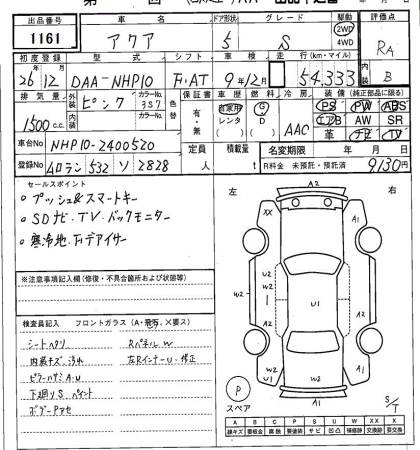 出品番号 車名 ドア形状 グレード 駆動 評価点
1161 アクア 5 S 2WD 4WD RA
初度登録 型式 シフト 車検 走行(km・マイル) 内装
26/12 DAA-NHP10 Fi・AT 9年12月 54,333 B
排気量 外装色 ピンク カラーNo. 3S7 色替 保証書 車歴 燃料 冷房 装備(純正部品に限る)
内装色 カラーNo. 有・無 自家用 レンタ G D AAC PS PW ABS
1500c.c. エアB AW SR
革 ナビ TV
車台No NHP10-2400520 定員 人 積載量 t 名変期限 年 月 日
登録No 532 ソ 2828 R料金 未預託・預託済 9,130円
セールスポイント
・プッシュ&スマートキー
・SDナビ.TV.バックモニター
・寒冷地.Frデアイサー
※注意事項記入欄(修復・不具合箇所および状態等)
検査員記入 フロントガラス(A・飛石、×要ス)
シートヘタリ Rパネル W
内装キズ、汚れ 左Rインナーu.修正
ピラーハサミA.u
下廻りS ペイント
ボデーアクセ
左 右
A2
XX A1
A1
U2 W2
W2 W2 I U1 W2
A2 A2
A1
P スペア S/T
A B C P S U W X XX
線キズ 要板金 腐蝕 要塗装 サビ 凹凸 補修跡 交換跡 要交換